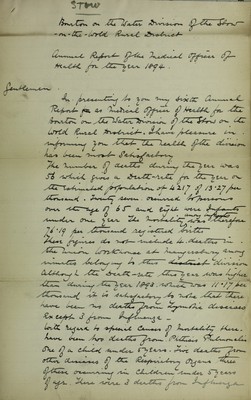 STOW
Bourton on the Water Division of the Stow
-on-the-Wold Rural District
Annual Report of the Medical Officer of
Health for the year 1894.
Gentlemen
In presenting to you my sixth Annual
Report as Medical Officer of Health for the
Bourton on the Water Division of the Stow on the
Wold Rural District. I have pleasure in
informing you that the health of the division
has been most Satisfactory
The number of deaths during the year was
56 which gives a Death-rate for the year on
the estimated population of 4217 of 13.27 per
thousand. Twenty seven occurred to persons
over the age of 65 and eight were Infants
under one year. The Mortality was therefore
76.19 per thousand registered births
These figures do not include 4 deaths in
the Union Workhouse
belonging to the division
Although the Death-rate this year was higher
than during the year 1893 which was 11.57 per
thousand it is satisfactory to note that there
have been no deaths from Zymotic diseases
Except 3 from Influenza.
With regard to special causes of Mortality there
have been two deaths from Phthisis Pulmonalis
one of a child under 5 years. Five deaths from
other diseases of the Respiratory Organs three
of these occurring in Children under 5 years
of age. There were 3 deaths from Influenza